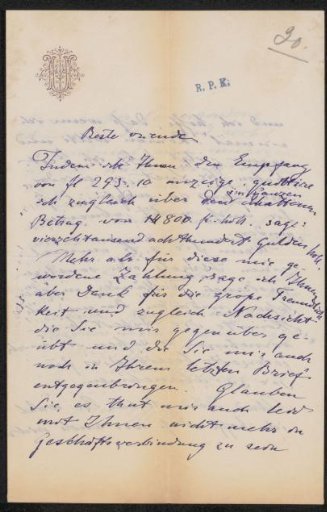 90.
R. P. K.
Beste vriend
Indem ich Ihnen den Empfang
von fl 293.10 anzeige, quittire
ich zugleich über den im ganzen erhaltenen
Betrag von 14800 fl. holl. sage:
vierzehntausend achthundert Gulden holl.
Mehr als für diese mir ge-
wordene Zahlung, sage ich Ihnen
aber Dank für die große Freundlich-
keit und zugleich Nachsicht
die Sie mir gegenüber ge-
übt und die Sie mir auch
noch in Ihrem letzten Brief
entgegenbringen. Glauben
Sie, es thut mir auch leid
mit Ihnen nicht mehr in
Geschäftsverbindung zu sein